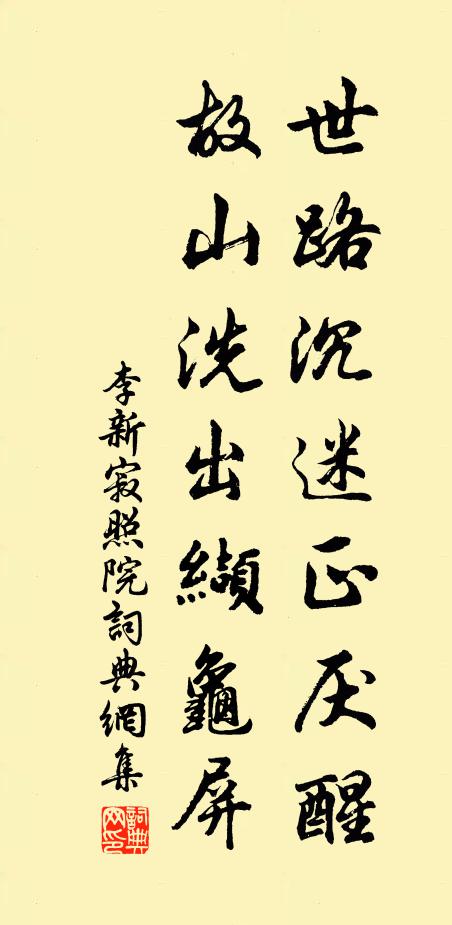 世路沉迷正厌醒
故山洗出纈龜屏
李新寂照院詞典網集
詞典
网印